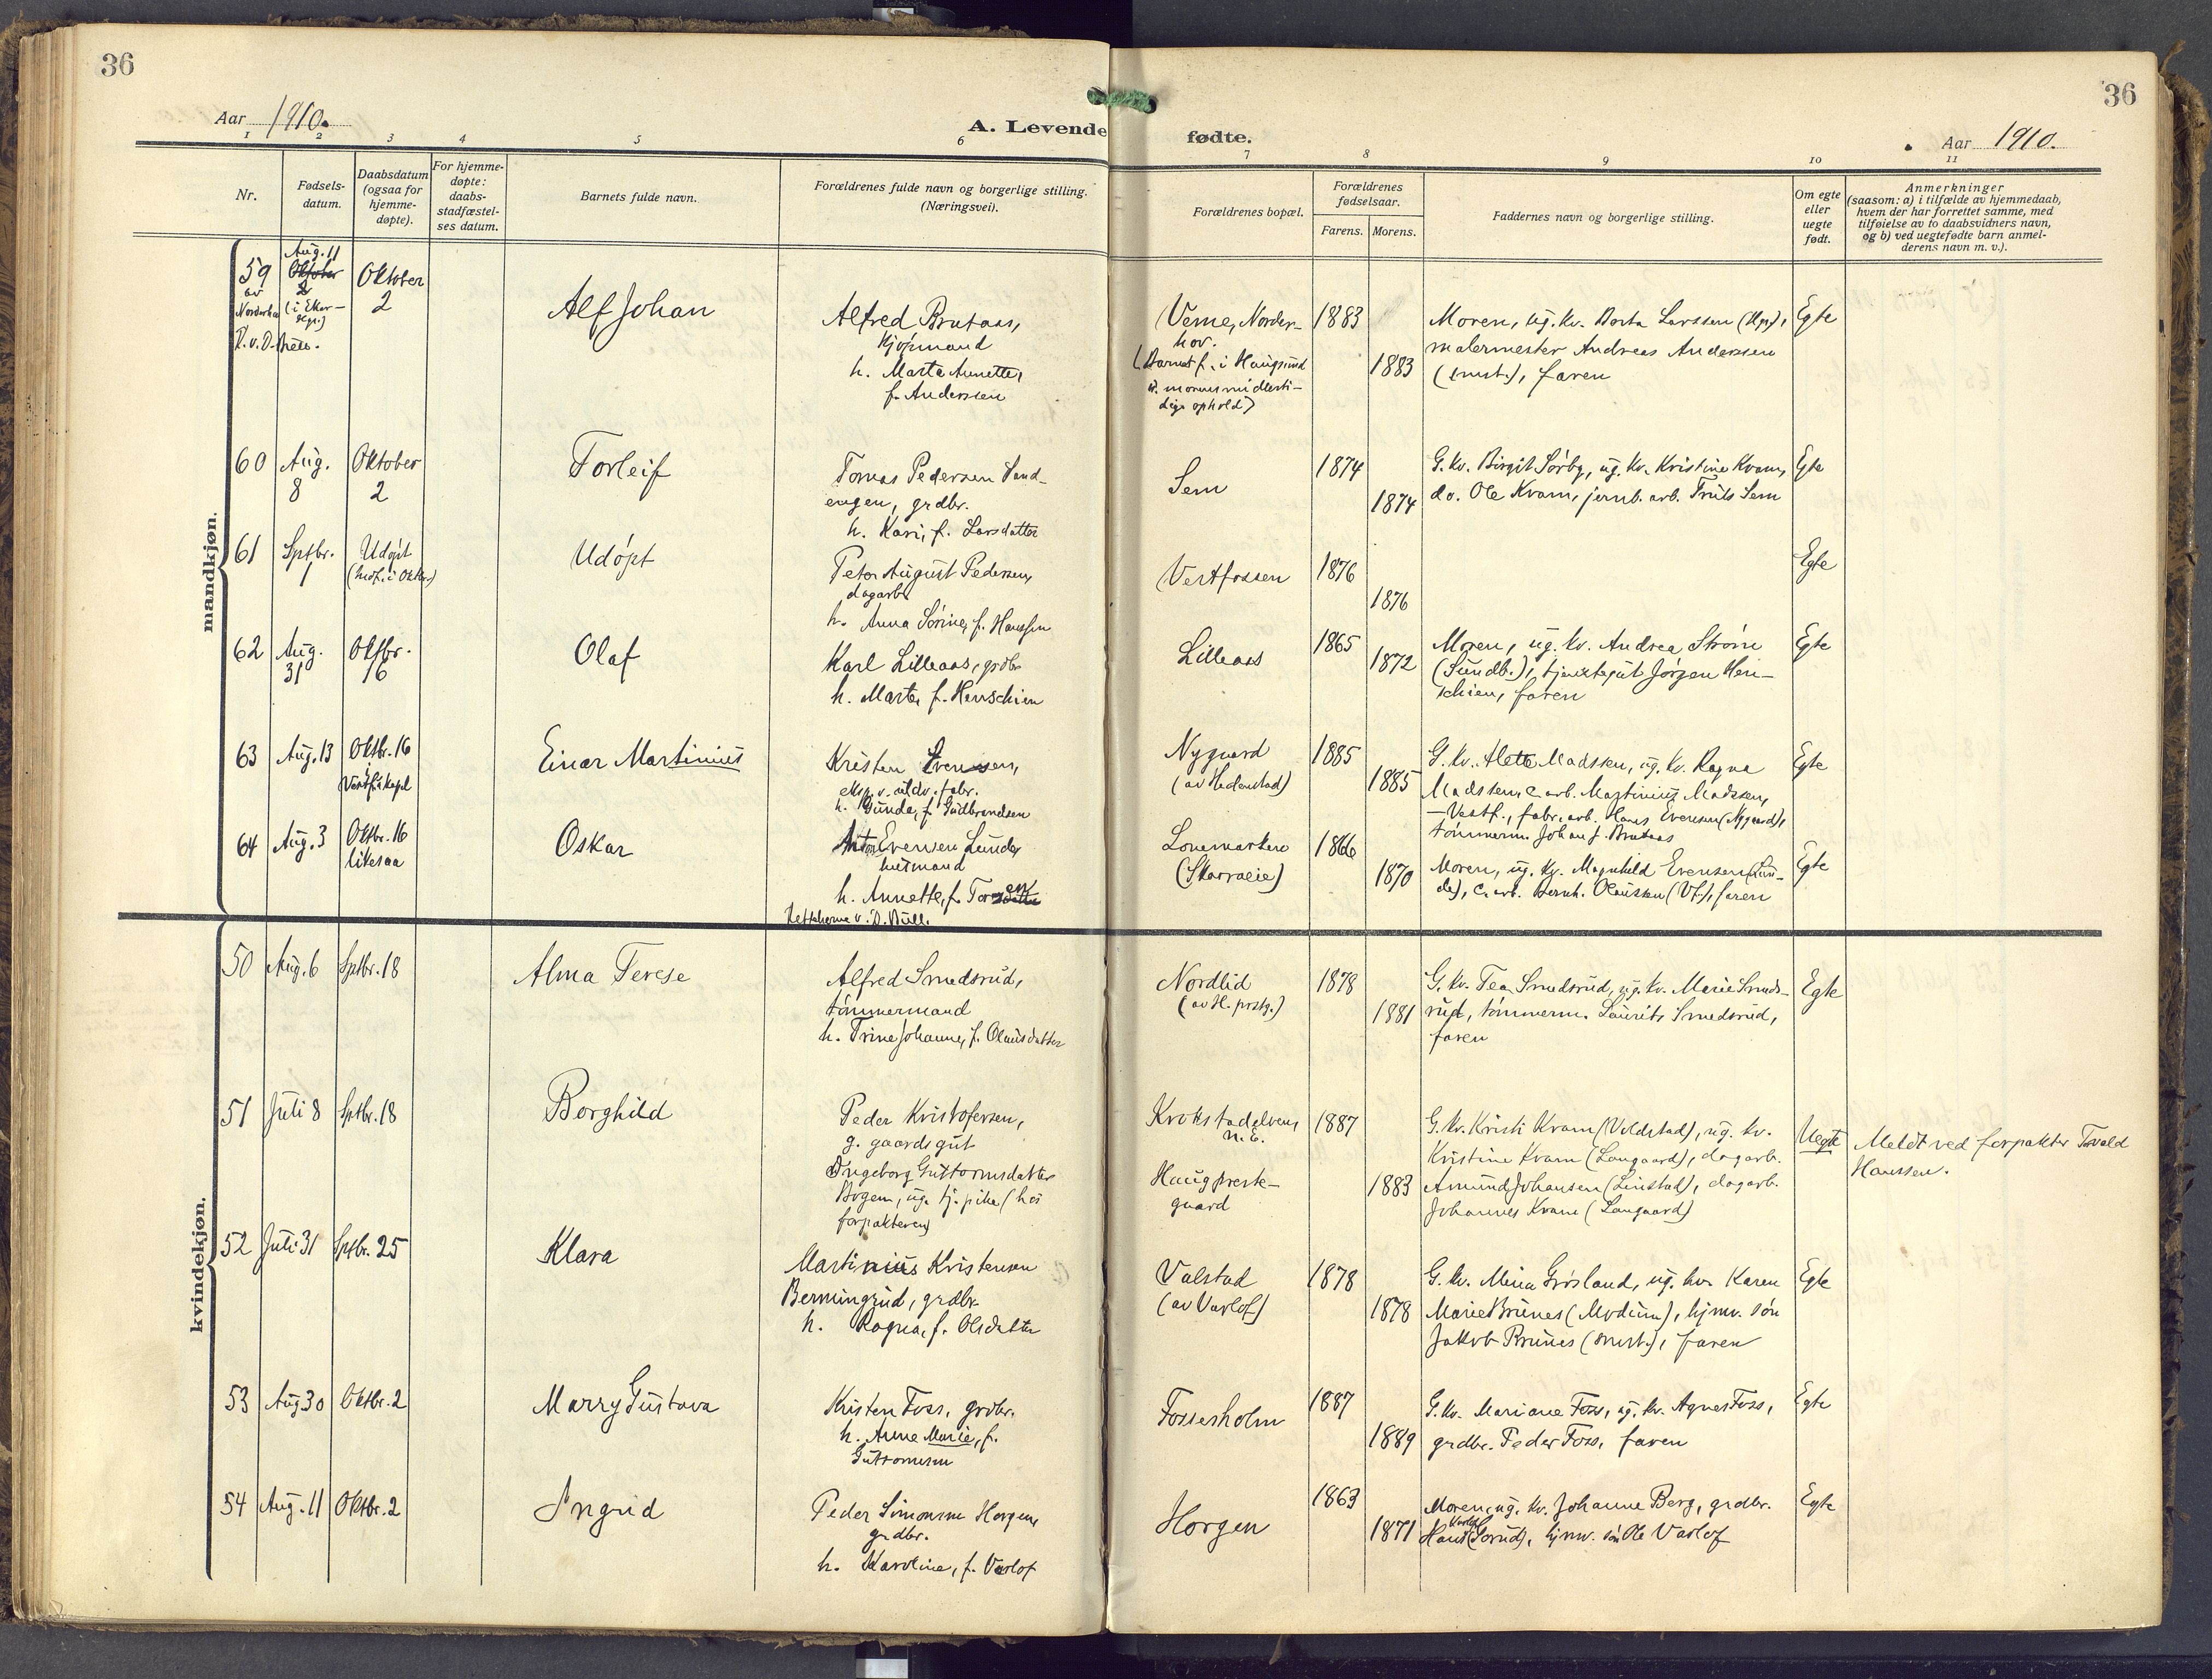 36
36
Aar 1910.
A. Levende
fødte.
Aar 1910.
1 2 3 4 5 6 7 8 9 10 11
Nr.
Fødsels-
datum.
Daabsdatum
(ogsaa for
hjemme-
døpte).
For hjemme-
døpte:
daabs-
stadfæstel-
ses datum.
Barnets fulde navn.
Forældrenes fulde navn og borgerlige stilling.
(Næringsvei).
Forældrenes bopæl.
Forældrenes
fødselsaar.
Farens. Morens.
Faddernes navn og borgerlige stilling.
Om egte
eller
uegte
født.
Anmerkninger
(saasom: a) i tilfælde av hjemmedaab,
hvem der har forrettet samme, med
tilføielse av to daabsvidners navn,
og b) ved uegtefødte barn anmel-
derens navn m. v.).
mandkjøn.
59
av
Aug. 11
Oktober
2
(i Eker
Oktober
2
Alf Johan
Alfred Brutaas,
kjøpmand
h. Marta Annette,
f. Andersen
Veme, Norder-
hov.
(Barnet f. i Haugsund
midlerti-
dige ophold)
1883
1883
Moren, ug. kv. Borta Larssen
malermester Andreas Anderssen
faren
Egte
60
Aug.
8
Oktober
2
Torleif
Tomas Pedersen Sand-
engen, grdbr.
h. Kari, f. Larsdatter
Sem
1874
1874
G. kv. Birgit Sørby, ug. kv. Kristine Kvam,
do. Ole Kvam, jernb. arb. Truls Sem
Egte
61
Sptbr.
1
Udøpt
Udøpt
Peter August Pedersen,
dagarb.
h. Anna Sørine, f. Hanssen
Vestfossen
1876
1876
Egte
62
Aug.
31
Oktbr.
16
Olaf
Karl Lilleaas, grdbr.
h. Marte, f. Henschien
Lilleaas
1865
1872
Moren, ug. kv. Andrea Strøm
(Sundb.), tjenestegut Jørgen Hen-
schien, faren
Egte
63
Aug. 13
Oktbr. 16
i
Vestf.s kapel
Einar Martinius
Kristen Evensen,
eksp. v. uldv. fabr.
h. Gunda, f. Gudbrandsen
Nygaard
(av Hedenstad)
1885
1885
G. kv. Alette Madssen, ug. kv. Ragna
Madssen, c. arb. Martinius Madssen,
– Vestf., fabr. arb. Hans Evensen (Nygaard),
tømmerm. Johan J. Brutaas
Egte
64
Aug. 3
Oktbr. 16
likesaa
Oskar
Anton Evensen Lunde,
husmand
h. Annette, f.
v. D. Bull.
Lonemarken
(Skarraeie)
1866
1870
Moren, ug. kv. Magnhild Evensen (Lun-
de), c. arb. Bernh. Olaussen (Vf.), faren
Egte
kvindekjøn.
50
Aug. 6
Sptbr. 18
Alma Terese
Alfred Smedsrud,
tømmermand
h. Trine Johanne, f. Olausdatter
Nordlid
(av H. prstg.)
1878
1881
G. kv. Tea Smedsrud, ug. kv. Marie Smeds-
rud, tømmerm. Laurits Smedsrud,
faren
Egte
51
Juli 8
Sptbr. 18
Borghild
Peder Kristofersen,
g. gaardsgut
Ingeborg Guttormsdatter
Bogen, ug. tj. pike (hos
forpakteren)
Krokstadelven,
N. E.
Haug preste-
gaard
1887
1883
G. kv. Kristi Kvam (Voldstad), ug. kv.
Kristine Kvam (Langaard), dagarb.
Amund Johansen (Linstad), dagarb.
Johannes Kvam (Langaard)
Uegte
Meldt ved forpakter Tvald
Hanssen.
52
Juli 31
Sptbr. 25
Klara
Martinius Kristensen
Bermingrud, grdbr.
h. Ragna, f. Olsdatter
Valstad
(av Varlof)
1878
1878
G. kv. Mina Grøsland, ug. kv. Karen
Marie Brunes (Modum), hjmv. søn
Jakob Brunes (smst.), faren
Egte
53
Aug 30
Oktbr. 2
Marry Gustava
Kristen Foss, grdbr.
h. Anne Marie, f.
Guttormsen
Fossesholm
1887
1889
G. kv. Mariane Foss, ug. kv. Agnes Foss,
grdbr. Peder Foss, faren
Egte
54
Aug. 11
Oktbr. 2
Ingrid
Peder Simonsen Horgen,
grdbr.
h. Karoline, f. Varlof
Horgen
1863
1871
Moren, ug. kv. Johanne Berg, grdbr.
Hans Varlof (Sorud), hjmv. søn Ole Varlof
Egte